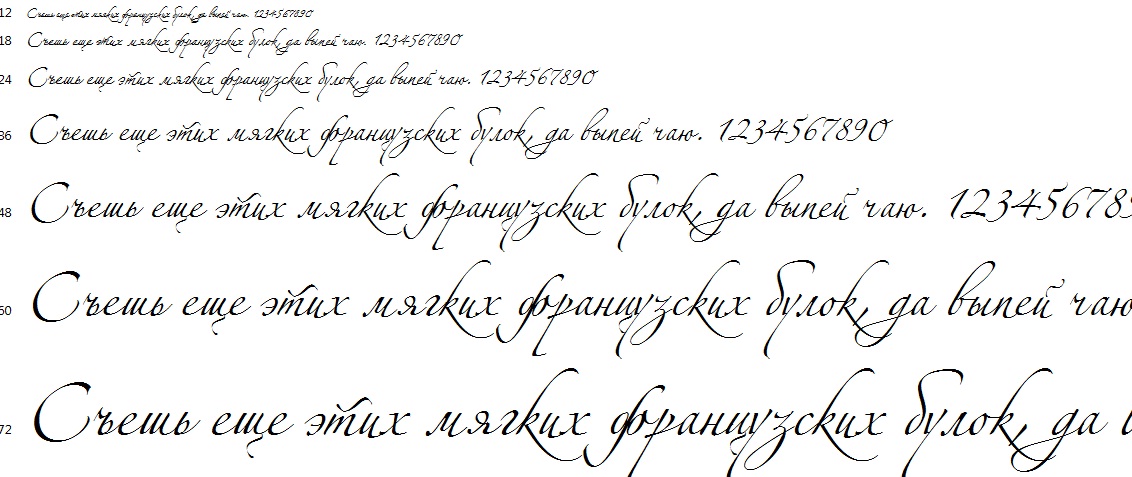 12 Съешь еще этих мягких французских булок, да выпей чаю. 1234567890
18 Съешь еще этих мягких французских булок, да выпей чаю. 1234567890
24 Съешь еще этих мягких французских булок, да выпей чаю. 1234567890
36 Съешь еще этих мягких французских булок, да выпей чаю. 1234567890
48 Съешь еще этих мягких французских булок, да выпей чаю. 123456789
60 Съешь еще этих мягких французских булок, да выпей чаю
72 Съешь еще этих мягких французских булок, да